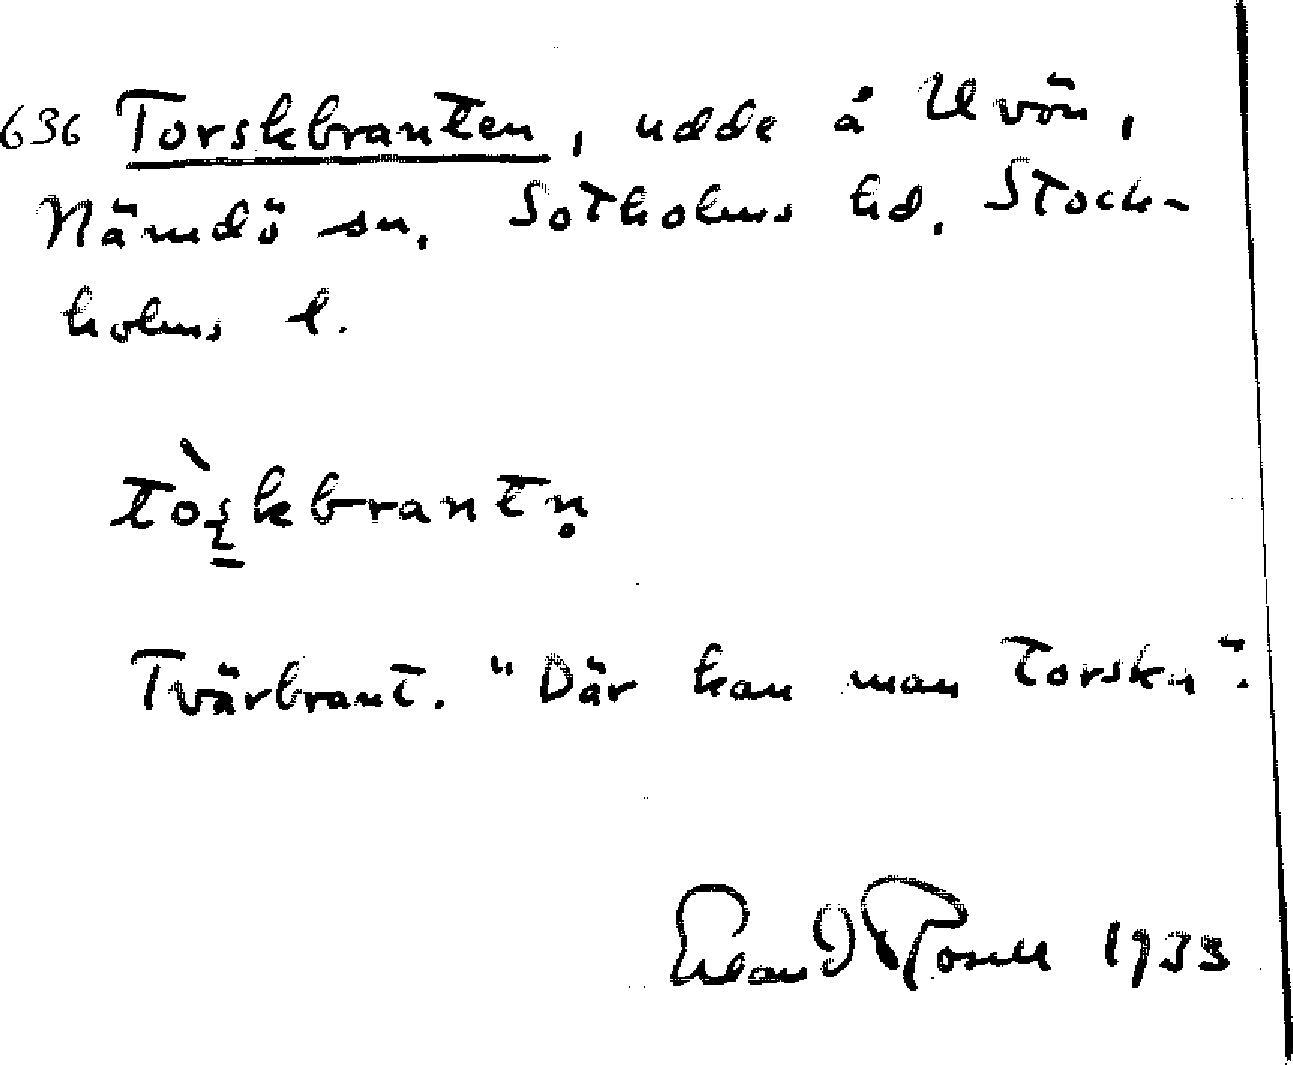 636 Torskbranten, udde å Uvön,
Nämdö sn. Sotholms hd. Stock-
holms l.
tòʂkbrantn̥
Tvärbrant. "Där kan man torska".
Erland Rosell 1933